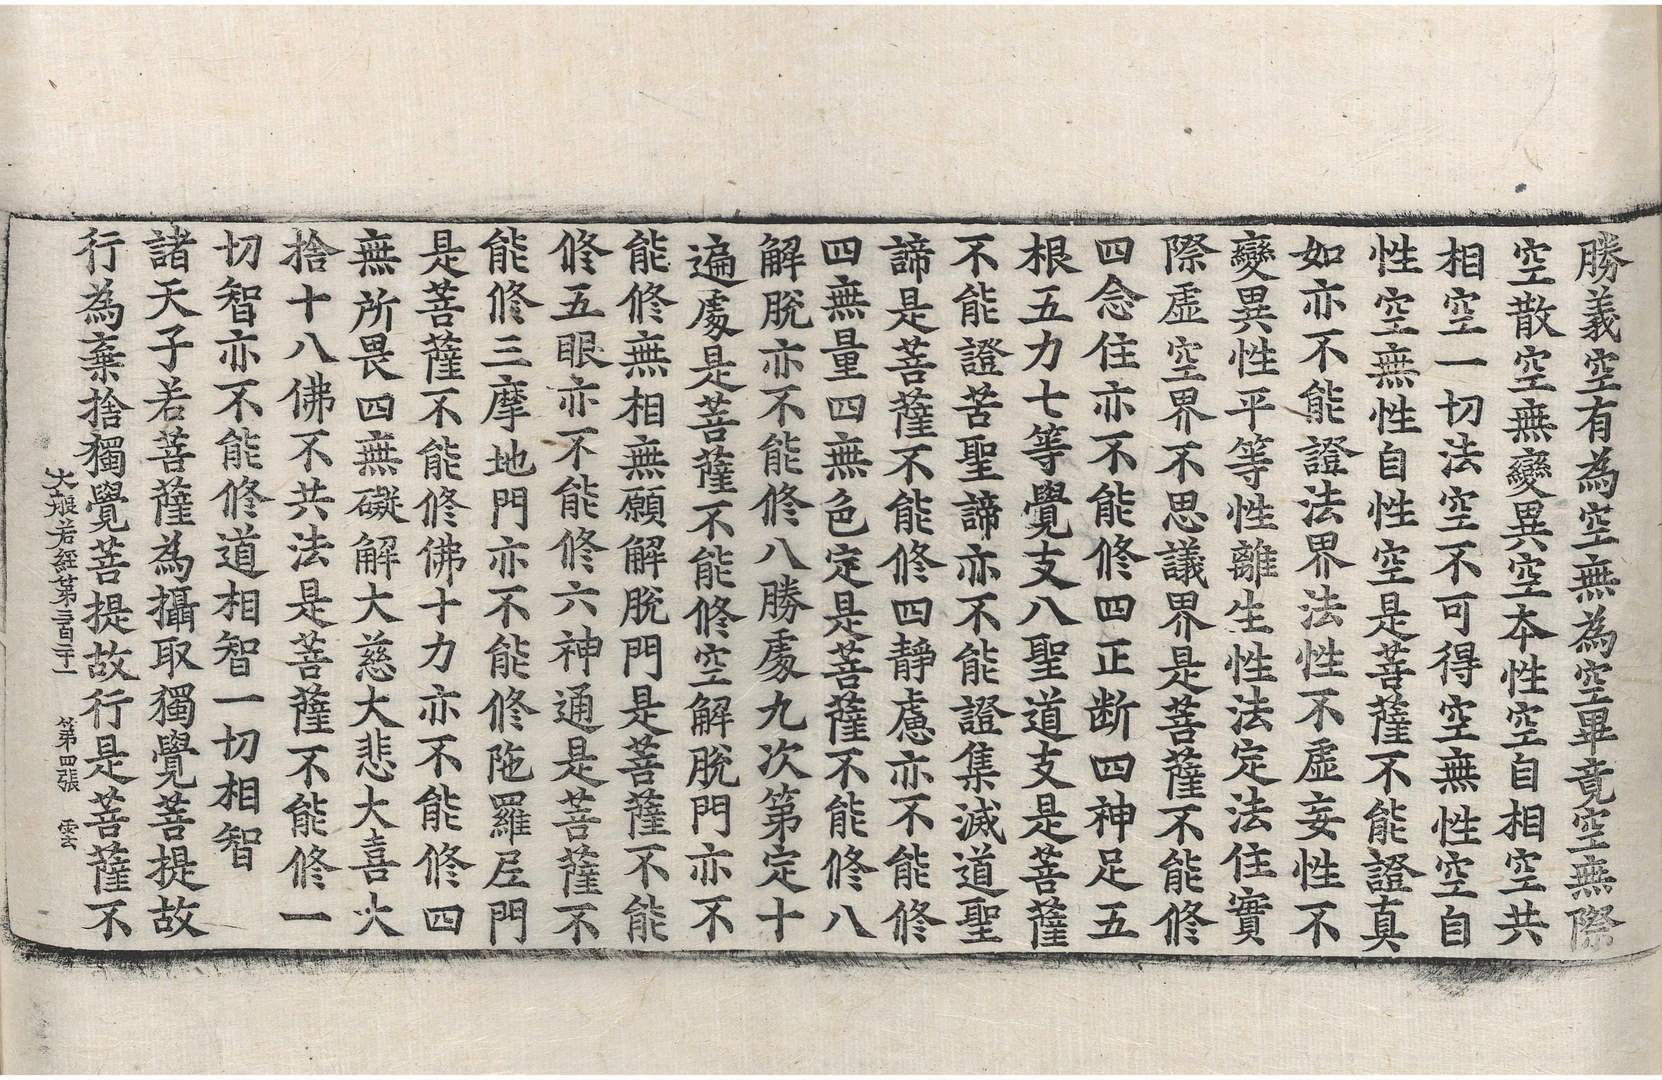 勝義空有為空無為空畢竟空無際
空散空無變異空本性空自相空共
相空一切法空不可得空無性空自
性空無性自性空是菩薩不能證真
如亦不能證法界法性不虛妄性不
變異性平等性離生性法定法住實
際虛空界不思議界是菩薩不能修
四念住亦不能修四正断四神足五
根五力七等覺支八聖道支是菩薩
不能證苦聖諦亦不能證集滅道聖
諦是菩薩不能修四靜慮亦不能修
四無量四無色定是菩薩不能修八
解脫亦不能修八勝處九次第定十
遍處是菩薩不能修空解脫門亦不
能修無相無願解脫門是菩薩不能
修五眼亦不能修六神通是菩薩不
能修三摩地門亦不能修陁羅尼門
是菩薩不能修佛十力亦不能修四
無所畏四無礙解大慈大悲大喜大
捨十八佛不共法是菩薩不能修一
切智亦不能修道相智一切相智
諸天子若菩薩為攝取獨覺菩提故
行為棄捨獨覺菩提故行是菩薩不
大般若經第三百二十一 第四張 雲